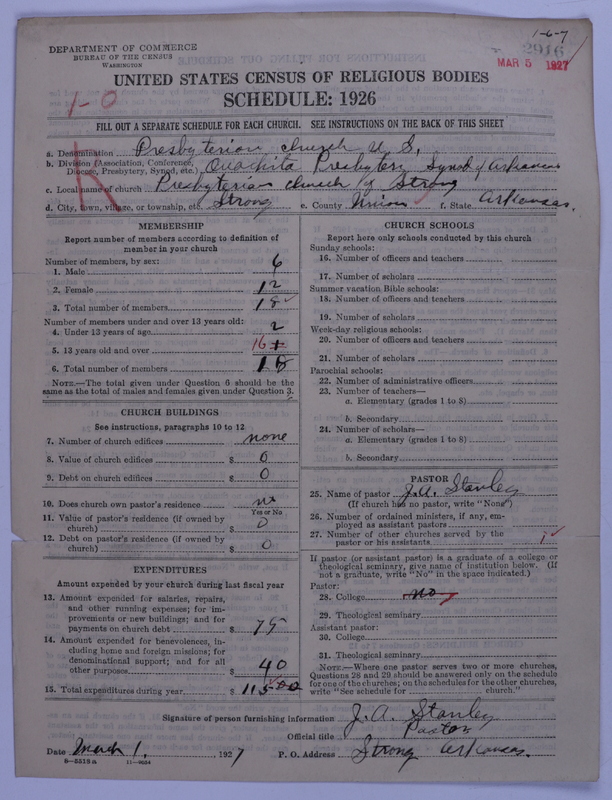 1-6-7
2916
MAR 5 1927
DEPARTMENT OF COMMERCE
BUREAU OF THE CENSUS
WASHINGTON
UNITED STATES CENSUS OF RELIGIOUS BODIES
1-0
SCHEDULE: 1926
FILL OUT A SEPARATE SCHEDULE FOR EACH CHURCH. SEE INSTRUCTIONS ON THE BACK OF THIS SHEET
K
a. Denomination Presbyterian church U. S.
b. Division (Association, Conference, Diocese, Presbytery, Synod, etc.) Ouachita Presbytery Synod of Arkansas
c. Local name of church Presbyterian church of Strong
d. City, town, village, or township, etc. Strong e. County Union f. State Arkansas.
MEMBERSHIP
Report number of members according to definition of
member in your church
Number of members, by sex:
1. Male 6
2. Female 12
3. Total number of members 18
Number of members under and over 13 years old:
4. Under 13 years of age 2
5. 13 years old and over 16
6. Total number of members 18
NOTE.—The total given under Question 6 should be the
same as the total of males and females given under Question 3.
CHURCH BUILDINGS
See instructions, paragraphs 10 to 12
7. Number of church edifices none
8. Value of church edifices $ 0
9. Debt on church edifices $ 0
10. Does church own pastor's residence no
Yes or No
11. Value of pastor's residence (if owned by
church) $ 0
12. Debt on pastor's residence (if owned by
church) $ 0
EXPENDITURES
Amount expended by your church during last fiscal year
13. Amount expended for salaries, repairs,
and other running expenses; for im-
provements or new buildings; and for
payments on church debt $ 75
14. Amount expended for benevolences, in-
cluding home and foreign missions; for
denominational support; and for all
other purposes $ 40
15. Total expenditures during year $ 115 00
CHURCH SCHOOLS
Report here only schools conducted by this church
Sunday schools:
16. Number of officers and teachers
17. Number of scholars
Summer vacation Bible schools:
18. Number of officers and teachers
19. Number of scholars
Week-day religious schools:
20. Number of officers and teachers
21. Number of scholars
Parochial schools:
22. Number of administrative officers
23. Number of teachers—
a. Elementary (grades 1 to 8)
b. Secondary
24. Number of scholars—
a. Elementary (grades 1 to 8)
b. Secondary
PASTOR
25. Name of pastor J. A. Stanley
(If church has no pastor, write "None")
26. Number of ordained ministers, if any, em-
ployed as assistant pastors
27. Number of other churches served by the
pastor or his assistants 1
If pastor (or assistant pastor) is a graduate of a college or
theological seminary, give name of institution below. (If
not a graduate, write "No" in the space indicated.)
Pastor:
28. College no
29. Theological seminary
Assistant pastor:
30. College
31. Theological seminary
NOTE.—Where one pastor serves two or more churches,
Questions 28 and 29 should be answered only on the schedule
for one of the churches; on the schedules for the other churches,
write "See schedule for church."
Signature of person furnishing information J. A. Stanley
Official title Pastor
Date March 1. 1927 P. O. Address Strong Arkansas.
8—5518a 11—8034